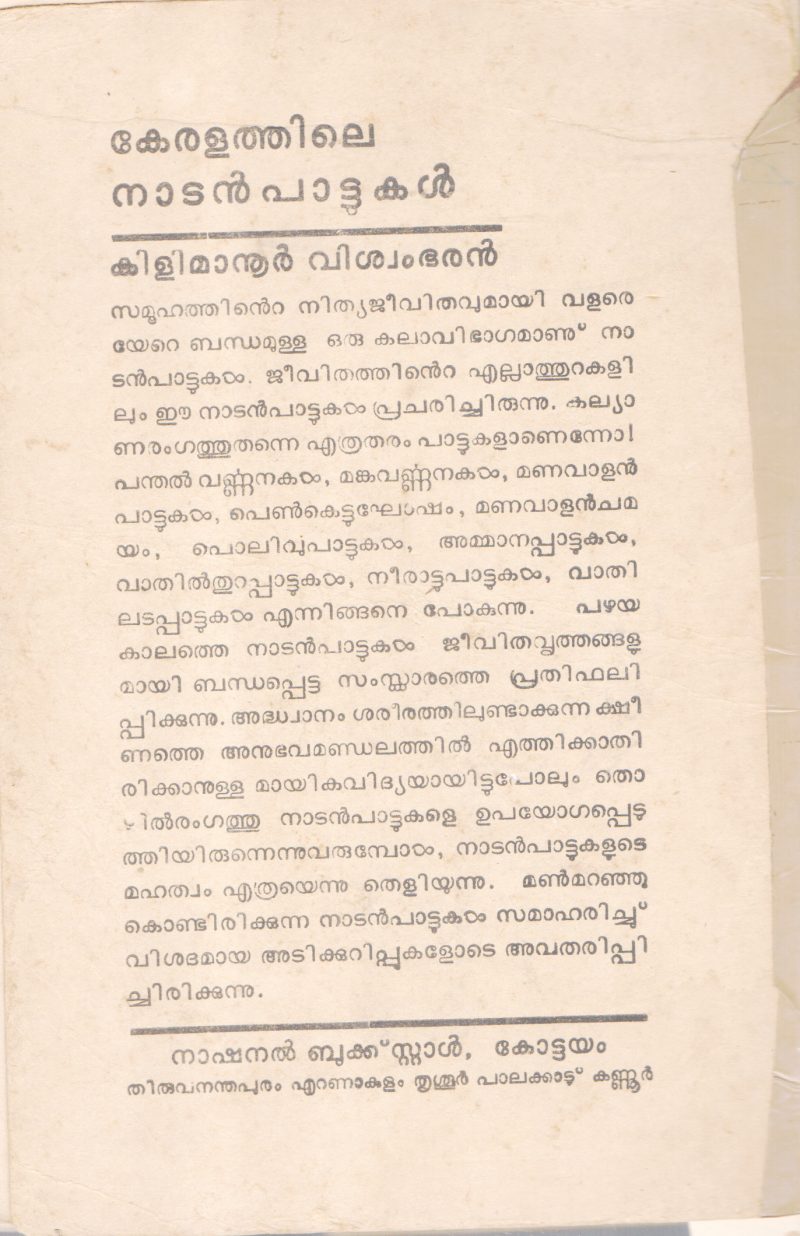 കേരളത്തിലെ
നാടൻപാട്ടുകൾ
കിളിമാനൂർ വിശ്വംഭരൻ
സമൂഹത്തിൻെറ നിത്യജീവിതവുമായി വളരെ
യേറെ ബന്ധമുള്ള ഒരു കലാവിഭാഗമാണു് നാ
ടൻപാട്ടുകൾ. ജീവിതത്തിൻെറ എല്ലാത്തുറകളി
ലും ഈ നാടൻപാട്ടുകൾ പ്രചരിച്ചിരുന്നു. കല്യാ
ണരംഗത്തുതന്നെ എത്രതരം പാട്ടുകളാണെന്നോ!
പന്തൽ വണ്ണനകൾ, മങ്കവണ്ണനകൾ, മണവാളൻ
പാട്ടുകൾ, പെൺകെട്ടുഘോഷം, മണവാളൻചമ
യം, പൊലിവുപാട്ടുകൾ, അമ്മാനപ്പാട്ടുകൾ,
വാതിൽതുറപ്പാട്ടുകൾ, നീരാട്ടുപാട്ടുകൾ, വാതി
ലടപ്പാട്ടുകൾ എന്നിങ്ങനെ പോകുന്നു. പഴയ
കാലത്തെ നാടൻപാട്ടുകൾ ജീവിതവൃത്തങ്ങളു
മായി ബന്ധപ്പെട്ട സംസ്കാരത്തെ പ്രതിഫലി
പ്പിക്കുന്നു. അദ്ധ്വാനം ശരീരത്തിലുണ്ടാക്കുന്ന ക്ഷീ
ണത്തെ അനുഭവമണ്ഡലത്തിൽ എത്തിക്കാതി
രിക്കാനുള്ള മായികവിദ്യയായിട്ടുപോലും തൊ
ഴിൽരംഗത്തു നാടൻപാട്ടുകളെ ഉപയോഗപ്പെടു
ത്തിയിരുന്നെന്നുവരുമ്പോൾ, നാടൻപാട്ടുകളുടെ
മഹത്വം എത്രയെന്നു തെളിയുന്നു. മൺമറഞ്ഞു
കൊണ്ടിരിക്കുന്ന നാടൻപാട്ടുകൾ സമാഹരിച്ചു്
വിശദമായ അടിക്കുറിപ്പുകളോടെ അവതരിപ്പി
ച്ചിരിക്കുന്നു.
നാഷനൽ ബുക്ക് സ്റ്റാൾ, കോട്ടയം
തിരുവനന്തപുരം എറണാകുളം തൃശൂർ പാലക്കാടു് കണ്ണൂർ